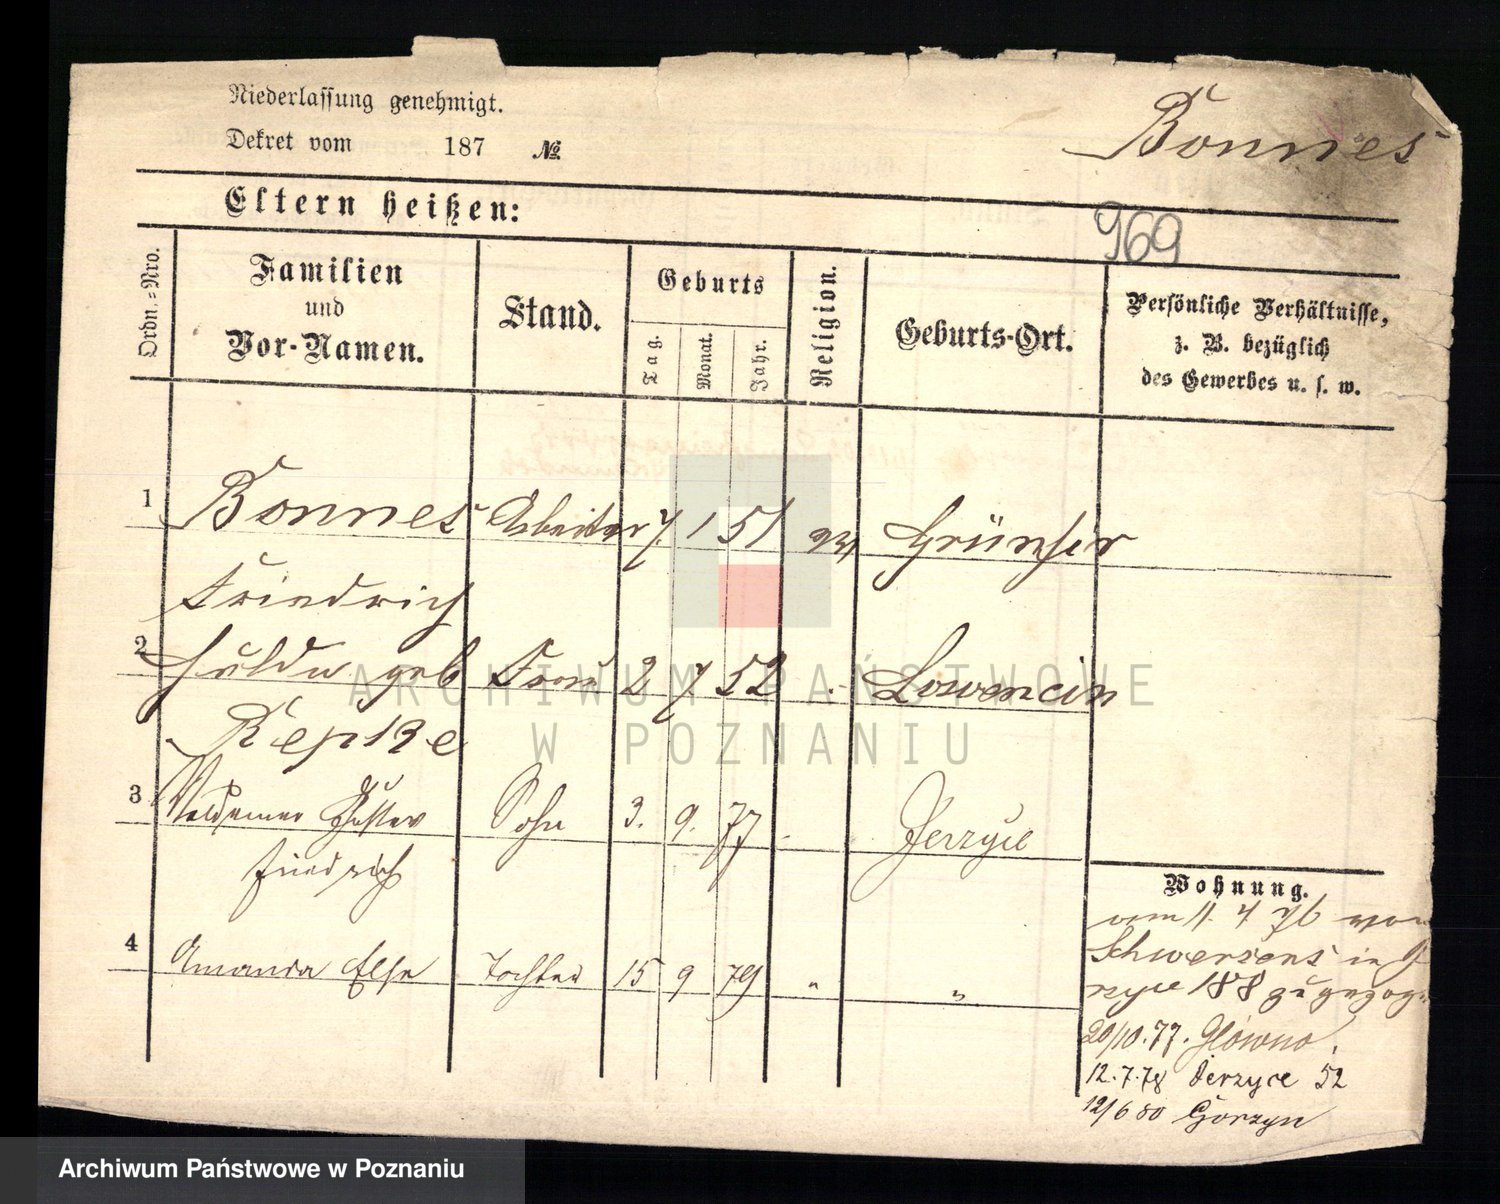 Niederlassung genehmigt.
Dekret vom 187 №
Bonnes
Eltern heißen:
969
Ordn.=Nro.
Familien
und
Vor-Namen.
Stand.
Geburts
Tag.
Monat.
Jahr.
Religion.
Geburts-Ort.
Persönliche Verhältnisse,
z. B. bezüglich
des Gewerbes u. s. w.
1 Bonnes Arbeiter 7. 1 51 ev
Friedrich
2 Hulda geb Frau 2 7 52 Lowencin
Repke
3 Waldemar Gustav Sohn 3. 9. 77 Jerzyce
Friedrich
4 Amanda Else Tochter 15 9 79 " "
Wohnung.
vom 11. 4 76 von
Schwersens in J
rzyce 188 zugezog.
20/10.77. Glówno.
12.7.78 Jerzyce 52
12/6 80 Gorzyn
ARCHIWUM PAŃSTWOWE
W POZNANIU
Archiwum Państwowe w Poznaniu